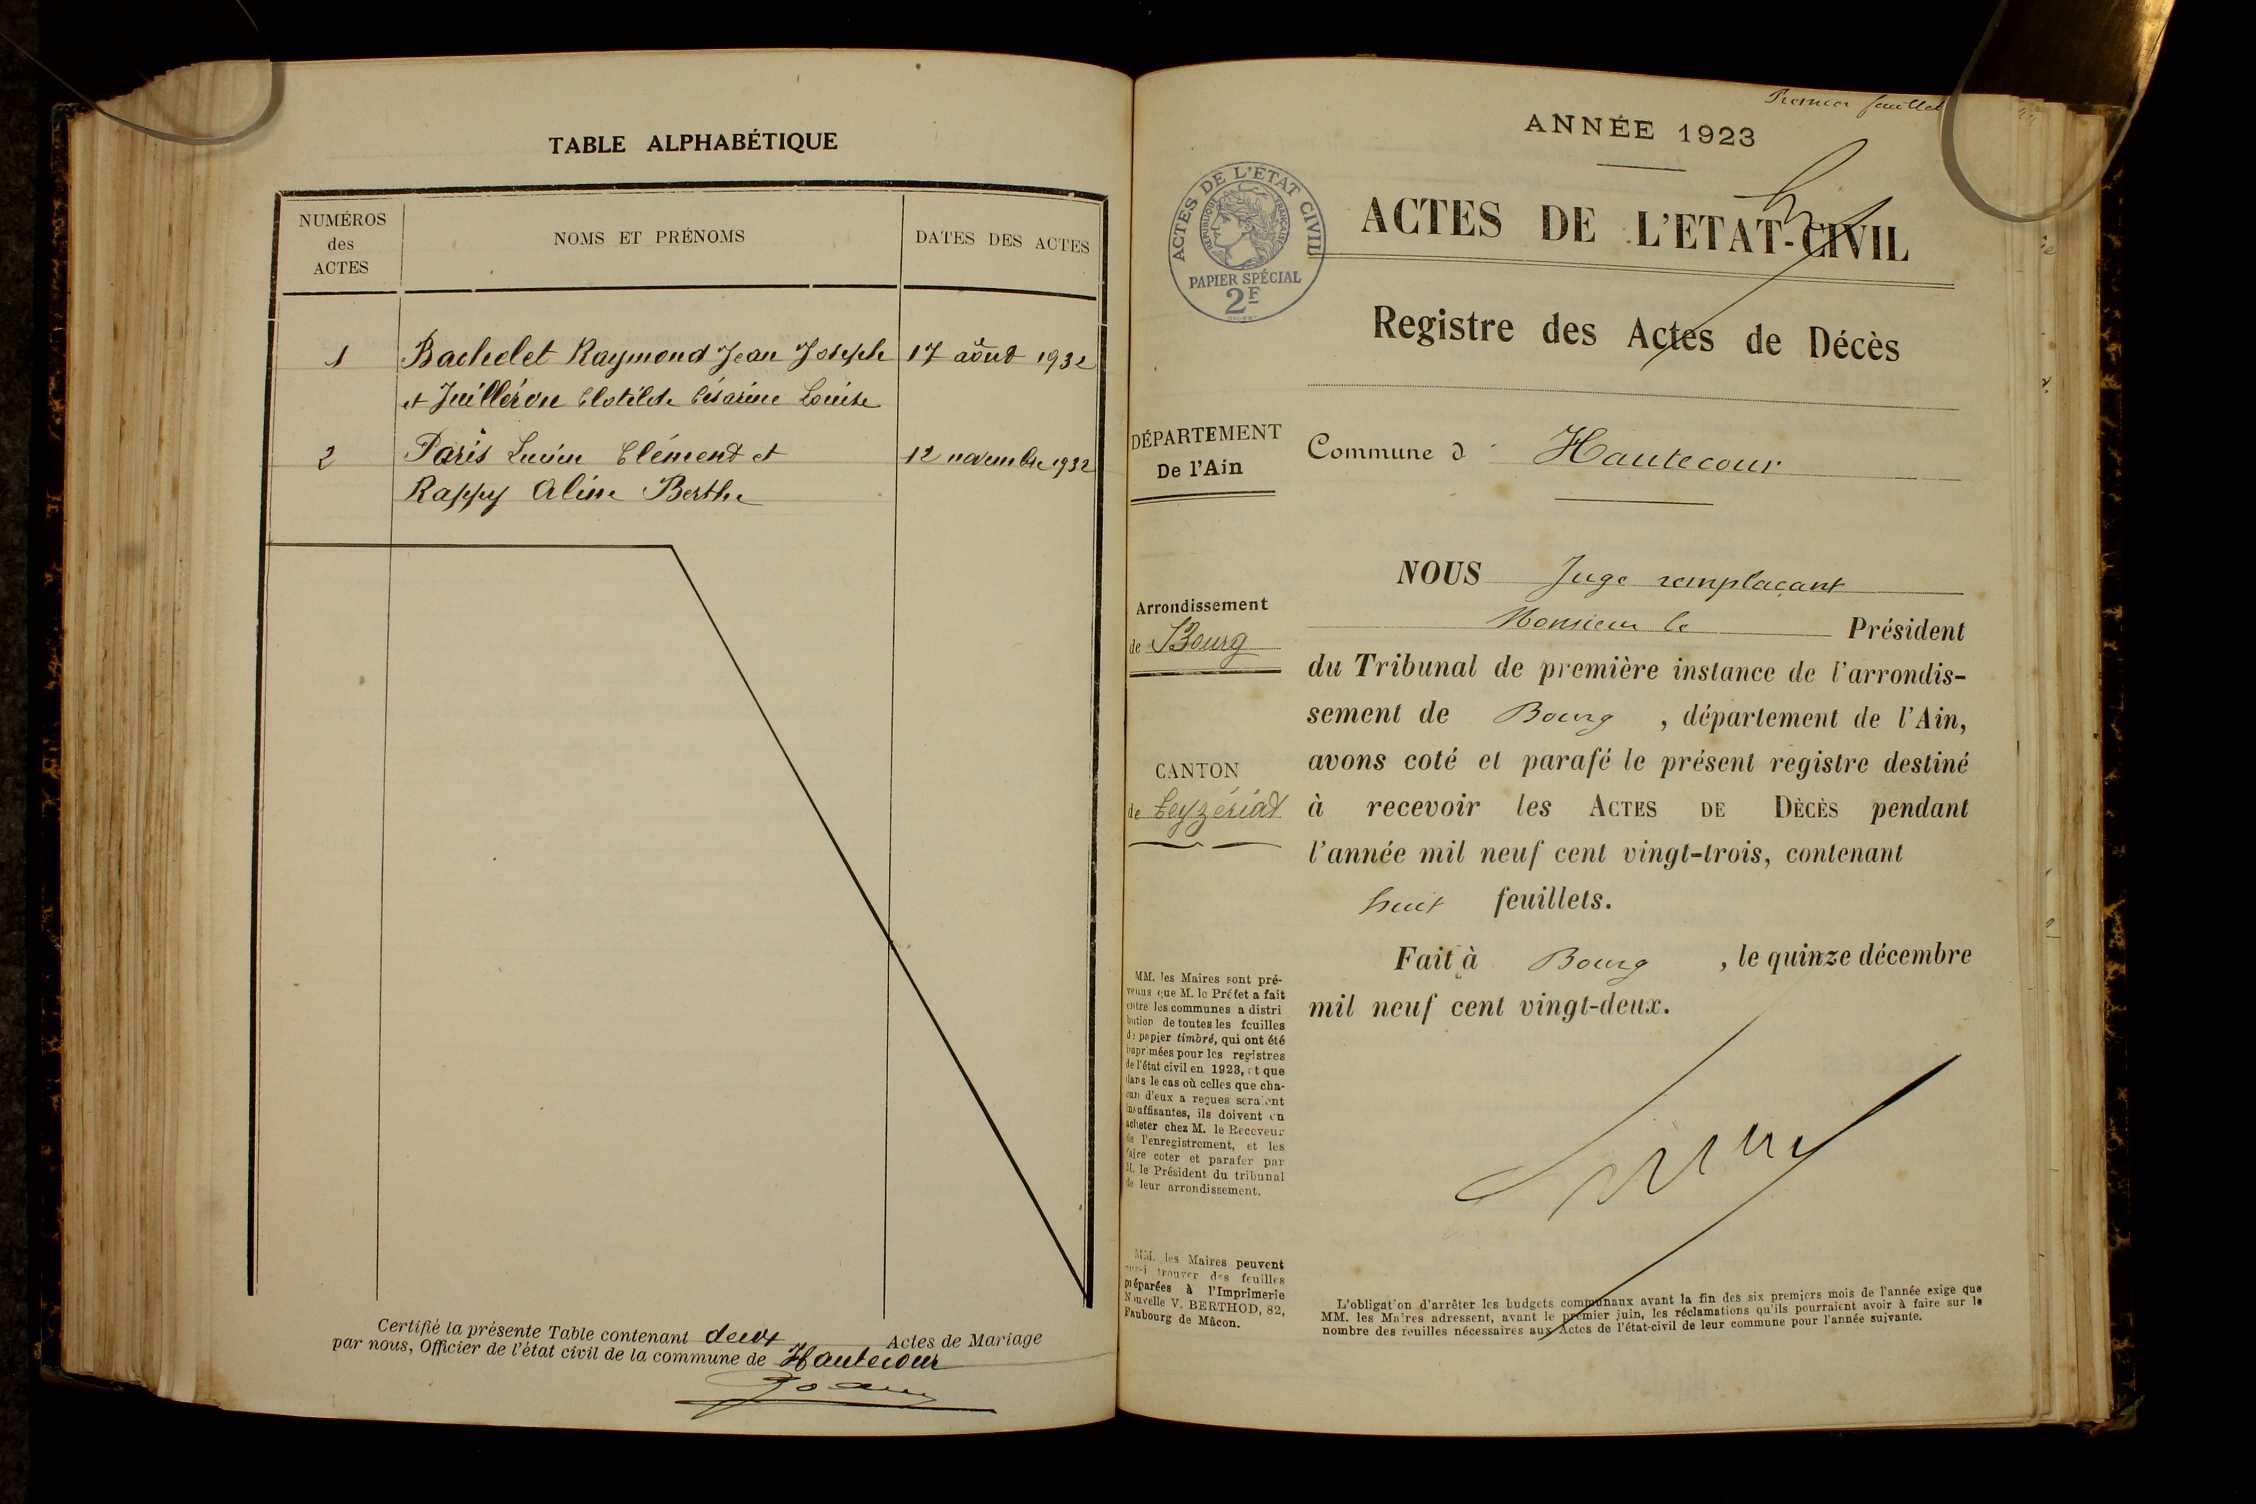 TABLE ALPHABÉTIQUE
NUMÉROS
des
ACTES
NOMS ET PRÉNOMS
DATES DES ACTES
1 Bachelet Raymond Jean Joseph 17 août 1932
et Juilléron Clotilde Césarine Louise
2 Paris Lucien Clément et 12 novembre 1932
Rappy Aline Berthe
Certifié la présente Table contenant deux Actes de Mariage
par nous, Officier de l'état civil de la commune de Hautecour
Premier feuillet
ANNÉE 1923
ACTES DE L'ETAT CIVIL
RÉPUBLIQUE FRANÇAISE
PAPIER SPÉCIAL
2F
ACTES DE L'ETAT-CIVIL
Registre des Actes de Décès
DÉPARTEMENT
De l'Ain
Commune d Hautecour
Arrondissement
de Bourg
CANTON
de Ceyzériat
NOUS Juge remplaçant
Monsieur le Président
du Tribunal de première instance de l'arrondis-
sement de Bourg, département de l'Ain,
avons coté et parafé le présent registre destiné
à recevoir les ACTES DE DÉCÈS pendant
l'année mil neuf cent vingt-trois, contenant
huit feuillets.
Fait à Bourg, le quinze décembre
mil neuf cent vingt-deux.
MM. les Maires sont pré-
venus que M. le Préfet a fait
entre les communes a distri
bution de toutes les feuilles
de papier timbré, qui ont été
imprimées pour les registres
de l'état civil en 1923, et que
dans le cas où celles que cha-
cun d'eux a reçues seraient
insuffisantes, ils doivent en
acheter chez M. le Receveur
de l'enregistrement, et les
faire coter et parafer par
M. le Président du tribunal
de leur arrondissement.
MM. les Maires peuvent
aussi trouver des feuilles
préparées à l'Imprimerie
Nouvelle V. BERTHOD, 82,
Faubourg de Mâcon.
L'obligation d'arrêter les budgets communaux avant la fin des six premiers mois de l'année exige que
MM. les Maires adressent, avant le premier juin, les réclamations qu'ils pourraient avoir à faire sur le
nombre des feuilles nécessaires aux Actes de l'état-civil de leur commune pour l'année suivante.